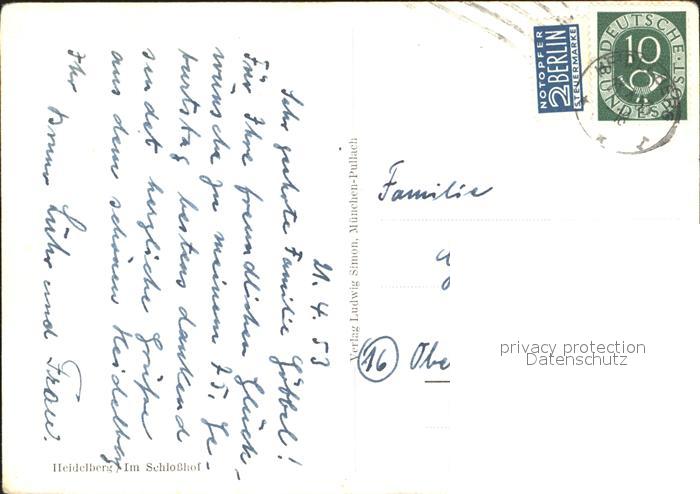 21. 4. 53
Sehr geehrte Familie Göbbel!
Für Ihre freundlichen Glück-
wünsche zu meinem 75. Ge-
burtstag bestens dankend
sendet herzliche Grüße
aus dem schönen Heidelberg
Ihr Bruno Lühr und Frau.
Heidelberg / Im Schloßhof
Verlag Ludwig Simon, München-Pullach
NOTOPFER
2 BERLIN
STEUERMARKE
DEUTSCHE
10
BUNDESPOST
Familie
G
(16) Obe
privacy protection
Datenschutz